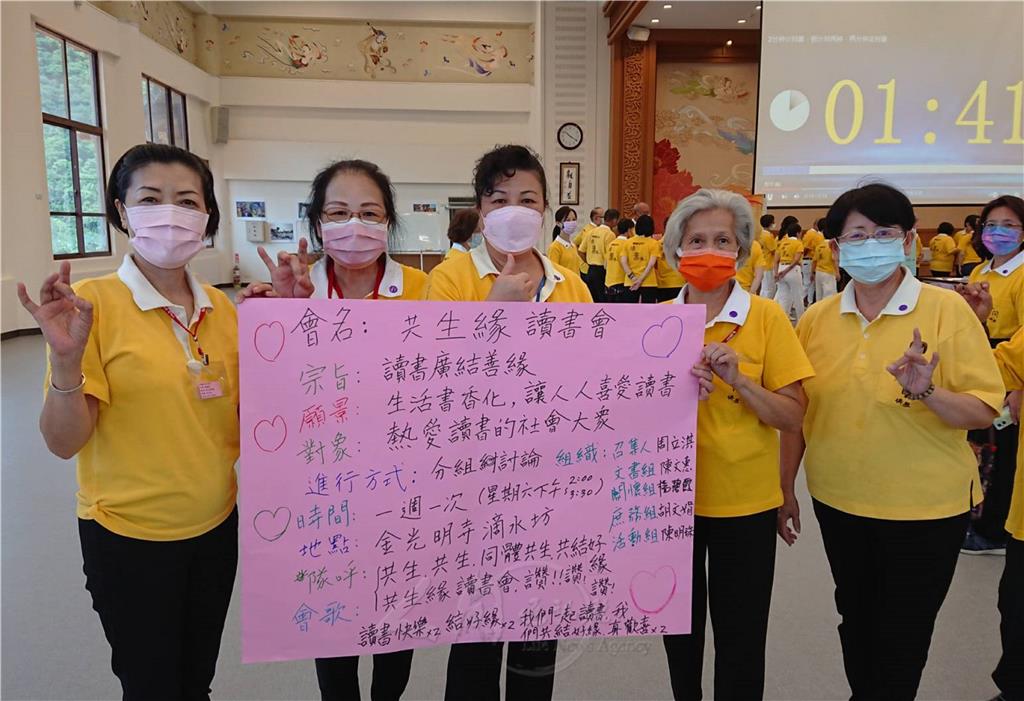 01:41
會名: 共生緣 讀書會
宗旨: 讀書廣結善緣
願景: 生活書香化，讓人人喜愛讀書
對象: 熱愛讀書的社會大眾
進行方式: 分組討論
時間: 一週一次 (星期六下午 2:00 3:30)
地點: 金光明寺滴水坊
隊呼: 共生、共生、同體共生、共結好緣
共生緣讀書會，讚!! 讚! 讚!
會歌: 讀書快樂x2 結好緣x2 我們一起讀書，我
們共結好緣 真歡喜x2
組織: 召集人 周立洪
文書組 陳文惠
關懷組
庶務組 胡文娟
活動組 陳明珠
Life News Agency